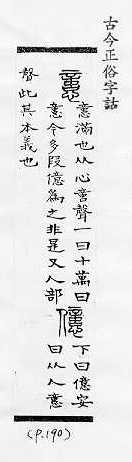 古今正俗字詁
𢡃
𢡃滿也从心𠶷聲一曰十萬曰
𢡃今多叚億為之非是又人部
億
下曰億安
曰从人𢡃
聲此其本義也
(P.190)